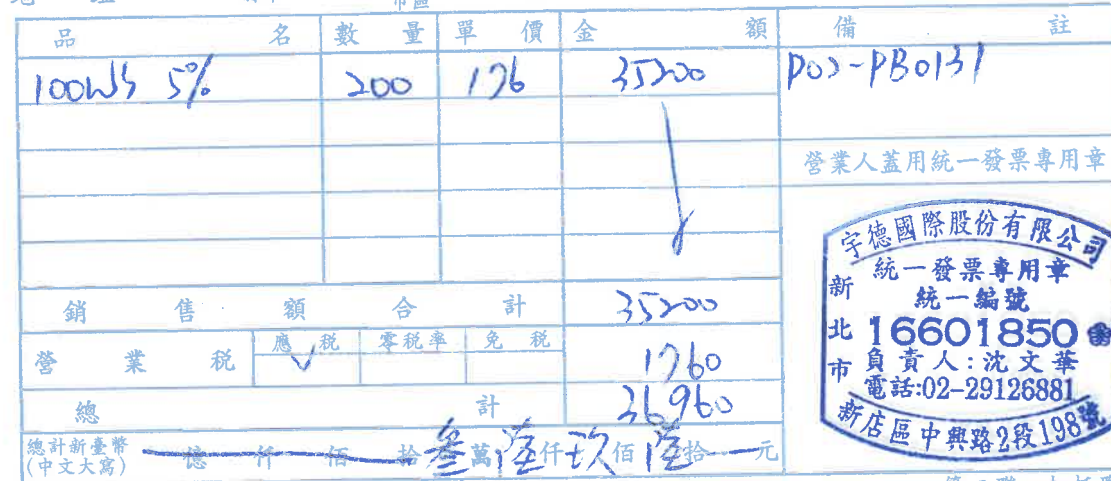 品名 數量 單價 金額 備註
100WS 5% 200 176 35200 P02-PB0131
營業人蓋用統一發票專用章
銷售額合計 35200
營業稅 應稅 ✓ 零稅率 免稅 1760
總計 36960
總計新臺幣
(中文大寫) 億 仟 佰 拾 叁 萬 陸 仟 玖 佰 陸 拾 元
宇德國際股份有限公司
統一發票專用章
統一編號
16601850
負責人:沈文華
電話:02-29126881
新北市
新店區中興路2段198號